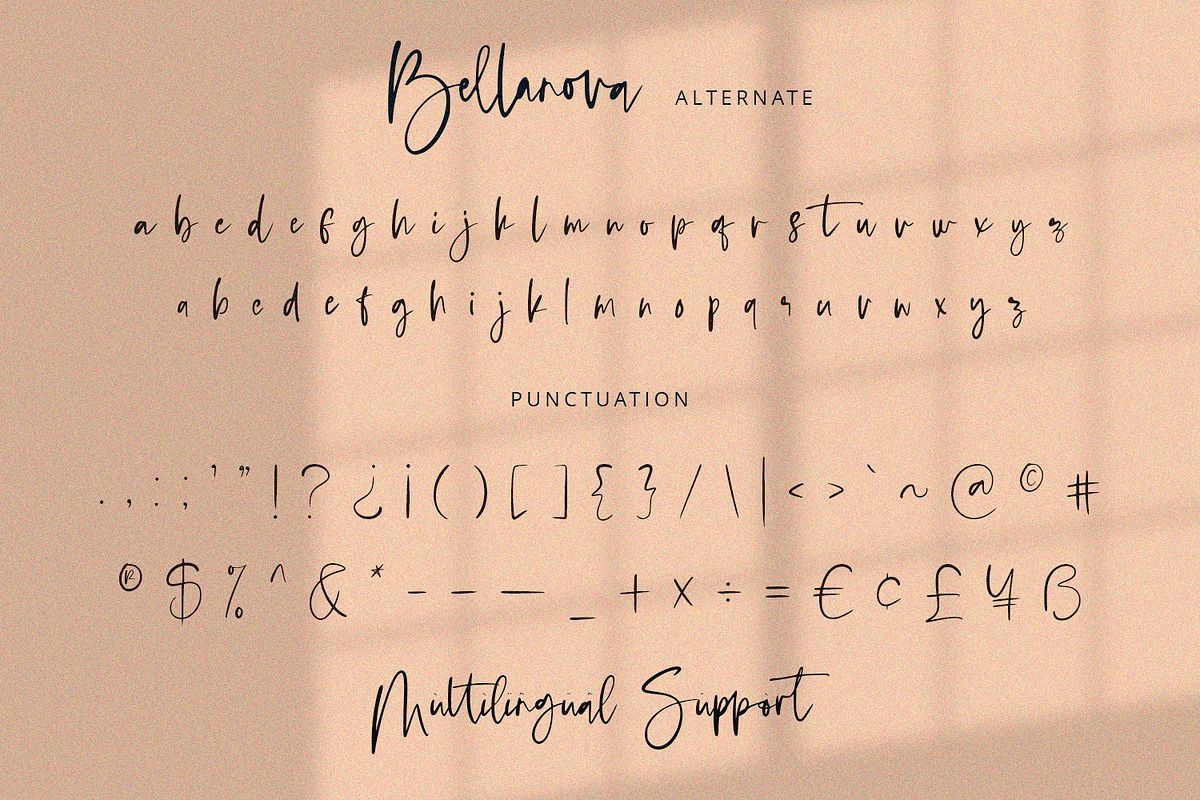 Bellanova ALTERNATE
a b c d e f g h i j k l m n o p q r s t u v w x y z
a b c d e f g h i j k l m n o p q r u v w x y z
PUNCTUATION
. , : ; ’ ” ! ? ¿ ¡ ( ) [ ] { } / \ | < > ` ~ @ © #
® $ % ^ & * - – — _ + × ÷ = € ¢ £ ¥ ß
Multilingual Support